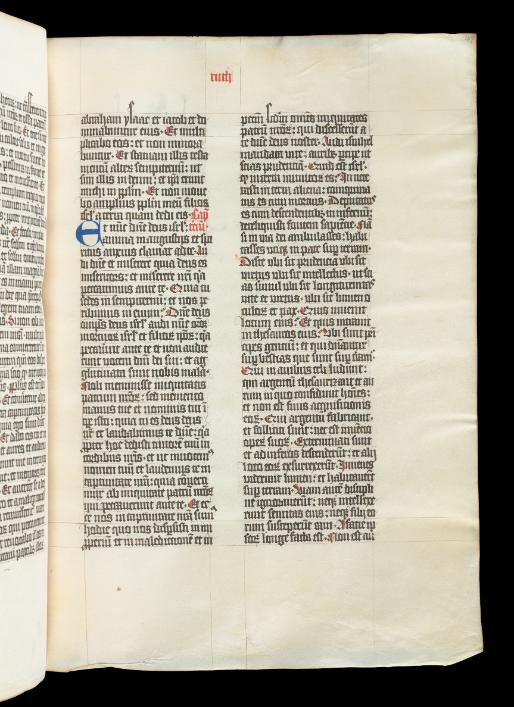 ruch
abraham ysaac et iacob et do
minabuntur eius. Et multi
plicabo eos: et non minora
buntur. Et statuam illis testa
mentū alterū sempiternū: ut
sim illis in deum: et ip̄i erunt
michi in pplm̄. Et non moue
bo amplius pplm̄ meū filios
isrl̄ a terra quam dedi eis. Cap̄
Et nūc dn̄e deus isrl̄: tciū.
anima in angustijs et spi
ritus anxius clamat ad te. Au
di dn̄e et miserere quia deus es
misericors: et miserere nr̄i q̄a
peccauimus ante te. Quia tu
sedes in sempiternū: et nos pe
ribimus in euum. Dn̄e deus
om̄ps deus isrl̄ audi nūc or̄oēs
mortuorū isrl̄ et filiorꝫ ip̄orꝫ: q̄a
peccauerūt ante te et non audie
runt vocem dn̄i dei sui: et ag
glutinata sunt nobis mala.
Noli meminisse iniquitatis
patrum nr̄orꝫ: sed memento
manus tue et nominis tui ī
tꝑe isto: quia tu es deus deus
nr̄ et laudabimus te dn̄e: q̄a
ꝓpter hoc dedisti timorē tuū in
cordibus nr̄is: et ut inuocem
nomen tuū et laudemus te in
captiuitate nr̄a: quia cōuerti
mur ab iniquitate patrū nr̄orꝫ
qui peccauerunt ante te. Et ec
ce nos in captiuitate nr̄a sum
hodie quo nos dispersisti in im
properiū et in maledictionē et in
peccm̄ scdm̄ om̄es iniquitates
patrū nr̄orꝫ: qui discesserūt a
te dn̄e deus noster. Audi israhel
mandata vite: auribus percipe ut
scias prudentiā. Quid est isrl̄
q̄ in terra inimicorū es: Inuete
rasti in terra aliena: coinquina
tus es cum mortuis. Deputatus
es cum descendentibus in infernū:
dereliquisti fontem sapiētie. Nā
si in via dei ambulasses: habi
tasses utiqꝫ in pace suꝑ terram.
Disce vbi sit prudentia vbi sit
virtus vbi sit intellectus: ut sci
as simul vbi sit longiturnitas
vite et victus. vbi sit lumen o
culorꝫ et pax. Quis inuenit
locum eius: Et quis intrauit
in thesauros eius: Vbi sunt prī
cipes gentiū: et qui dn̄antur
suꝑ bestias que sunt suꝑ terrā:
Qui in auibus celi ludunt:
qui argentū thesaurizant et au
rum in quo confidunt hoīes:
et non est finis acquisitionis
eorꝫ. Qui argentū fabricant
et solliciti sunt: nec est inuētio
operꝫ suorꝫ. Exterminati sunt
et ad inferos descenderūt: et alij
loco eorꝫ exsurrexerūt. Iuuenes
viderunt lumen: et habitauerūt
suꝑ terram. Viam autē discipli
ne ignorauerūt: neqꝫ intellexe
runt semitas eius: neqꝫ filij eo
rum susceperūt eam. A facie ip
sorꝫ longe facta est. Non est au